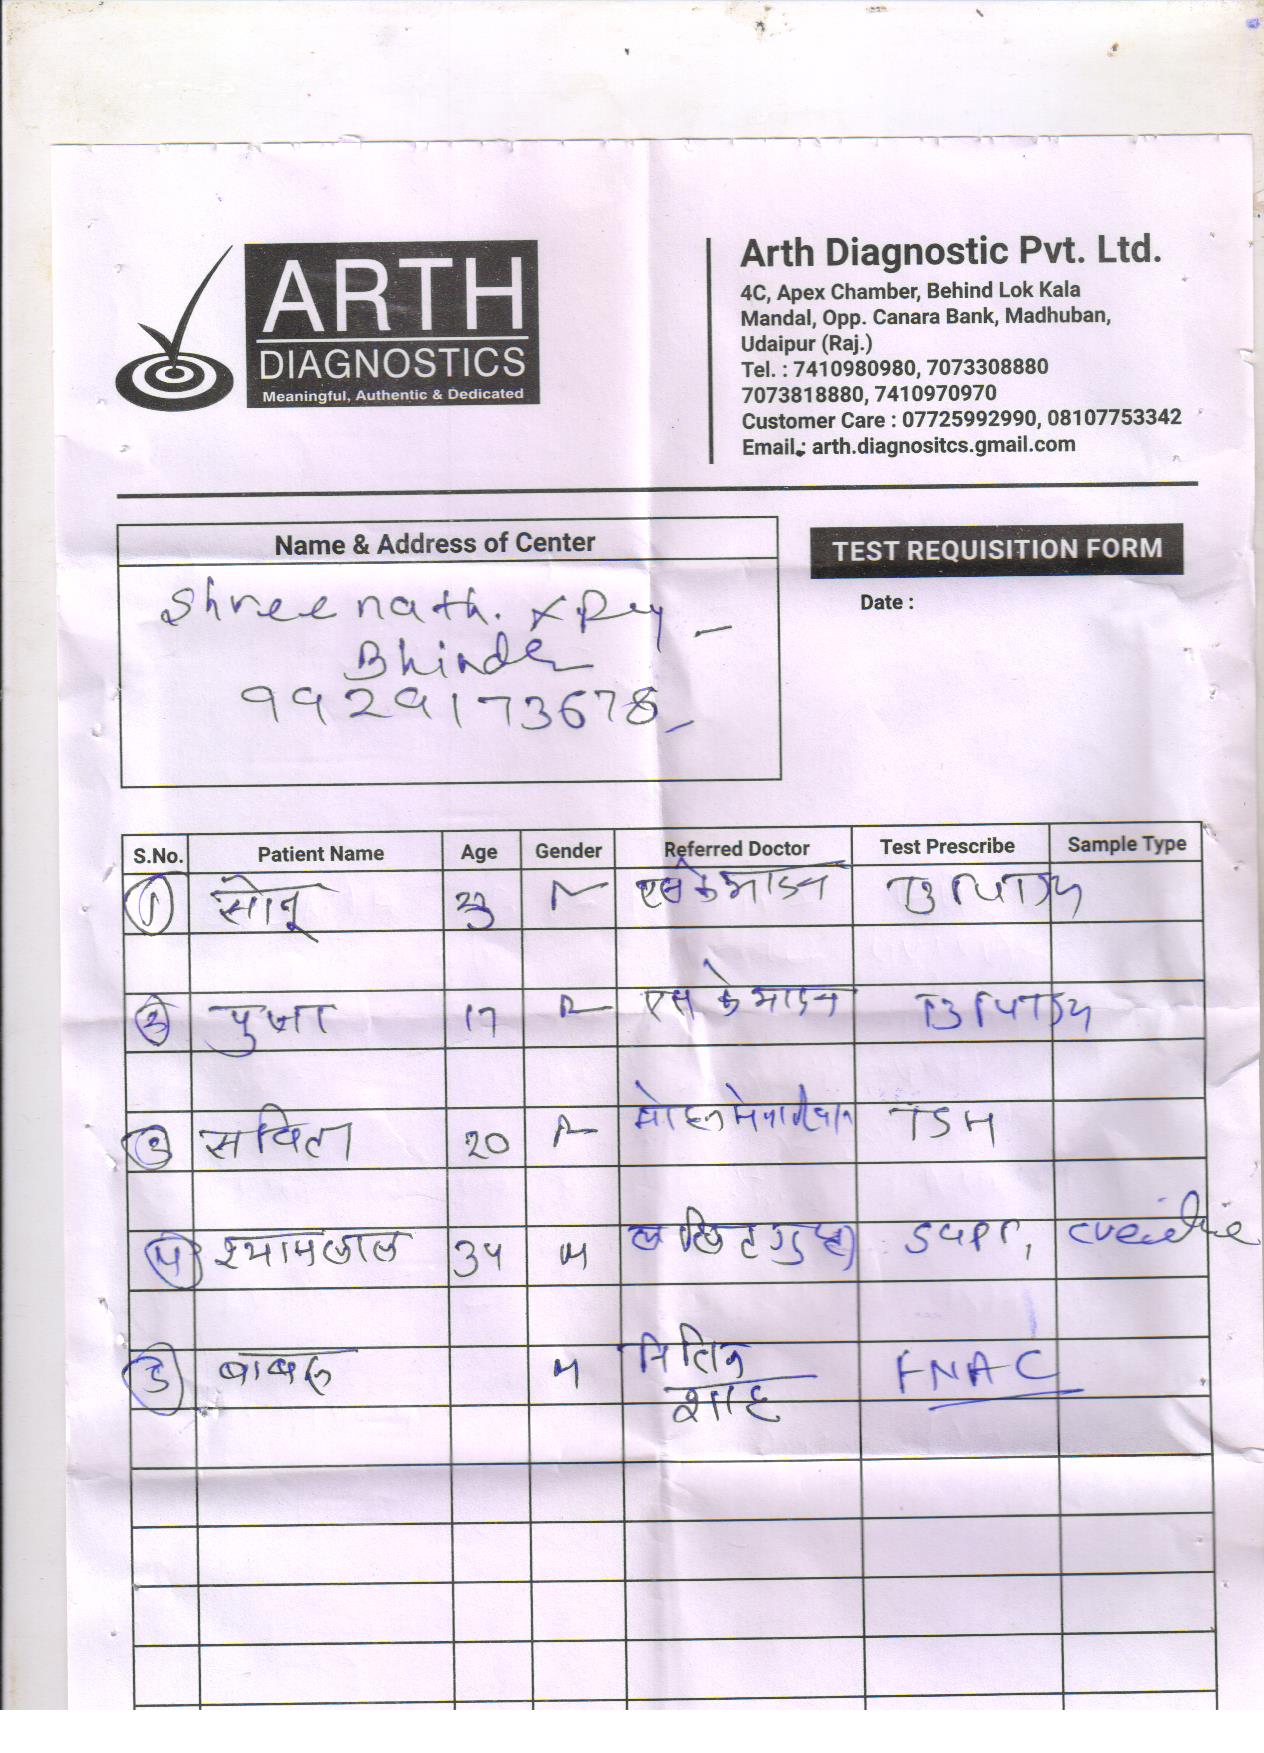 ARTH
DIAGNOSTICS
Meaningful, Authentic & Dedicated
Arth Diagnostic Pvt. Ltd.
4C, Apex Chamber, Behind Lok Kala
Mandal, Opp. Canara Bank, Madhuban,
Udaipur (Raj.)
Tel. : 7410980980, 7073308880
7073818880, 7410970970
Customer Care : 07725992990, 08107753342
Email.: arth.diagnositcs.gmail.com
Name & Address of Center
TEST REQUISITION FORM
Date :
Shreenath. X Ray
Bhinder
9929173678
S.No. Patient Name Age Gender Referred Doctor Test Prescribe Sample Type
1 सोनु एस के
2 पुजा 17 एस के
3 सविता 20 TSH
4 श्यामलाल M ललित
5 M नितिन FNAC
शाह